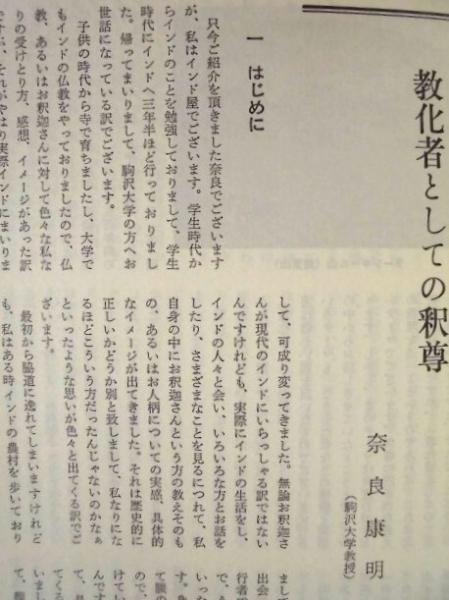 教化者としての釈尊
奈良康明
（駒沢大学教授）
一 はじめに
只今ご紹介を頂きました奈良でございます
が、私はインド屋でございます。学生時代か
らインドのことを勉強しておりまして、学生
時代にインドへ三年半ほど行っており まし
た。帰ってまいりまして、駒沢大学の方へお
世話になっている訳でございます。
子供の時代から寺で育ちましたし、大学で
もインドの仏教をやっておりましたので、仏
教、あるいはお釈迦さんに対して色々な私な
りの受けとり方、感想、イメージがあった訳
ですが、それがやはり実際インドにまいりま
して、可成り変ってきました。無論お釈迦さ
んが現代のインドにいらっしゃる訳ではない
んですけれども、実際にインドの生活をし、
インドの人々と会い、いろいろな方とお話を
したり、さまざまなことを見るにつれて、私
自身の中にお釈迦さんという方の教えそのも
の、あるいはお人柄についての実感、具体的
なイメージが出てきました。それは歴史的に
正しいかどうか別と致しまして、私なりにな
るほどこういう方だったんじゃないのかなぁ
といったような思いが色々と出てくる訳でご
ざいます。
最初から脇道に逸れてしまいますけれど
も、私はある時インドの農村を歩いており
まし
出会
行者
で、
いった